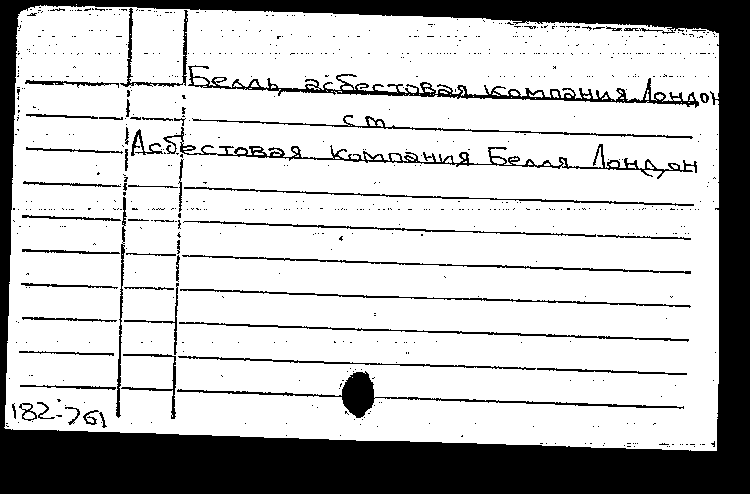 Белль, асбестовая компания Лондон
см.
Асбестовая компания Белля Лондон
182-761